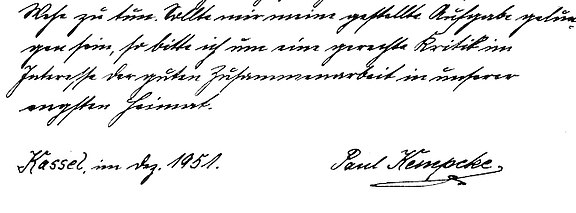 Wehe zu tun. Sollte mir meine gestellte Aufgabe gelun-
gen sein, so bitte ich um eine gerechte Kritik im
Interesse der guten Zusammenarbeit in unserer
engsten Heimat.
Kassel, im Dez. 1951. Paul Kempcke